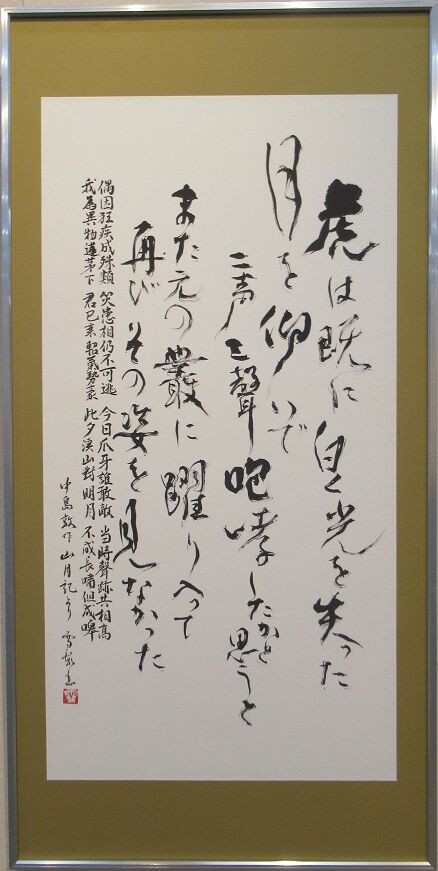 虎は既に白く光を失った
月を仰いで
二声三聲咆哮したかと思うと
また元の叢に躍り入って
再びその姿を見なかった
偶因狂疾成殊類 災患相仍不可逃 今日爪牙誰敢敵 當時聲跡共相高
我為異物蓬茅下 君已乗軺氣勢豪 此夕渓山對明月 不成長嘯但成嘷
中島敦作 山月記より